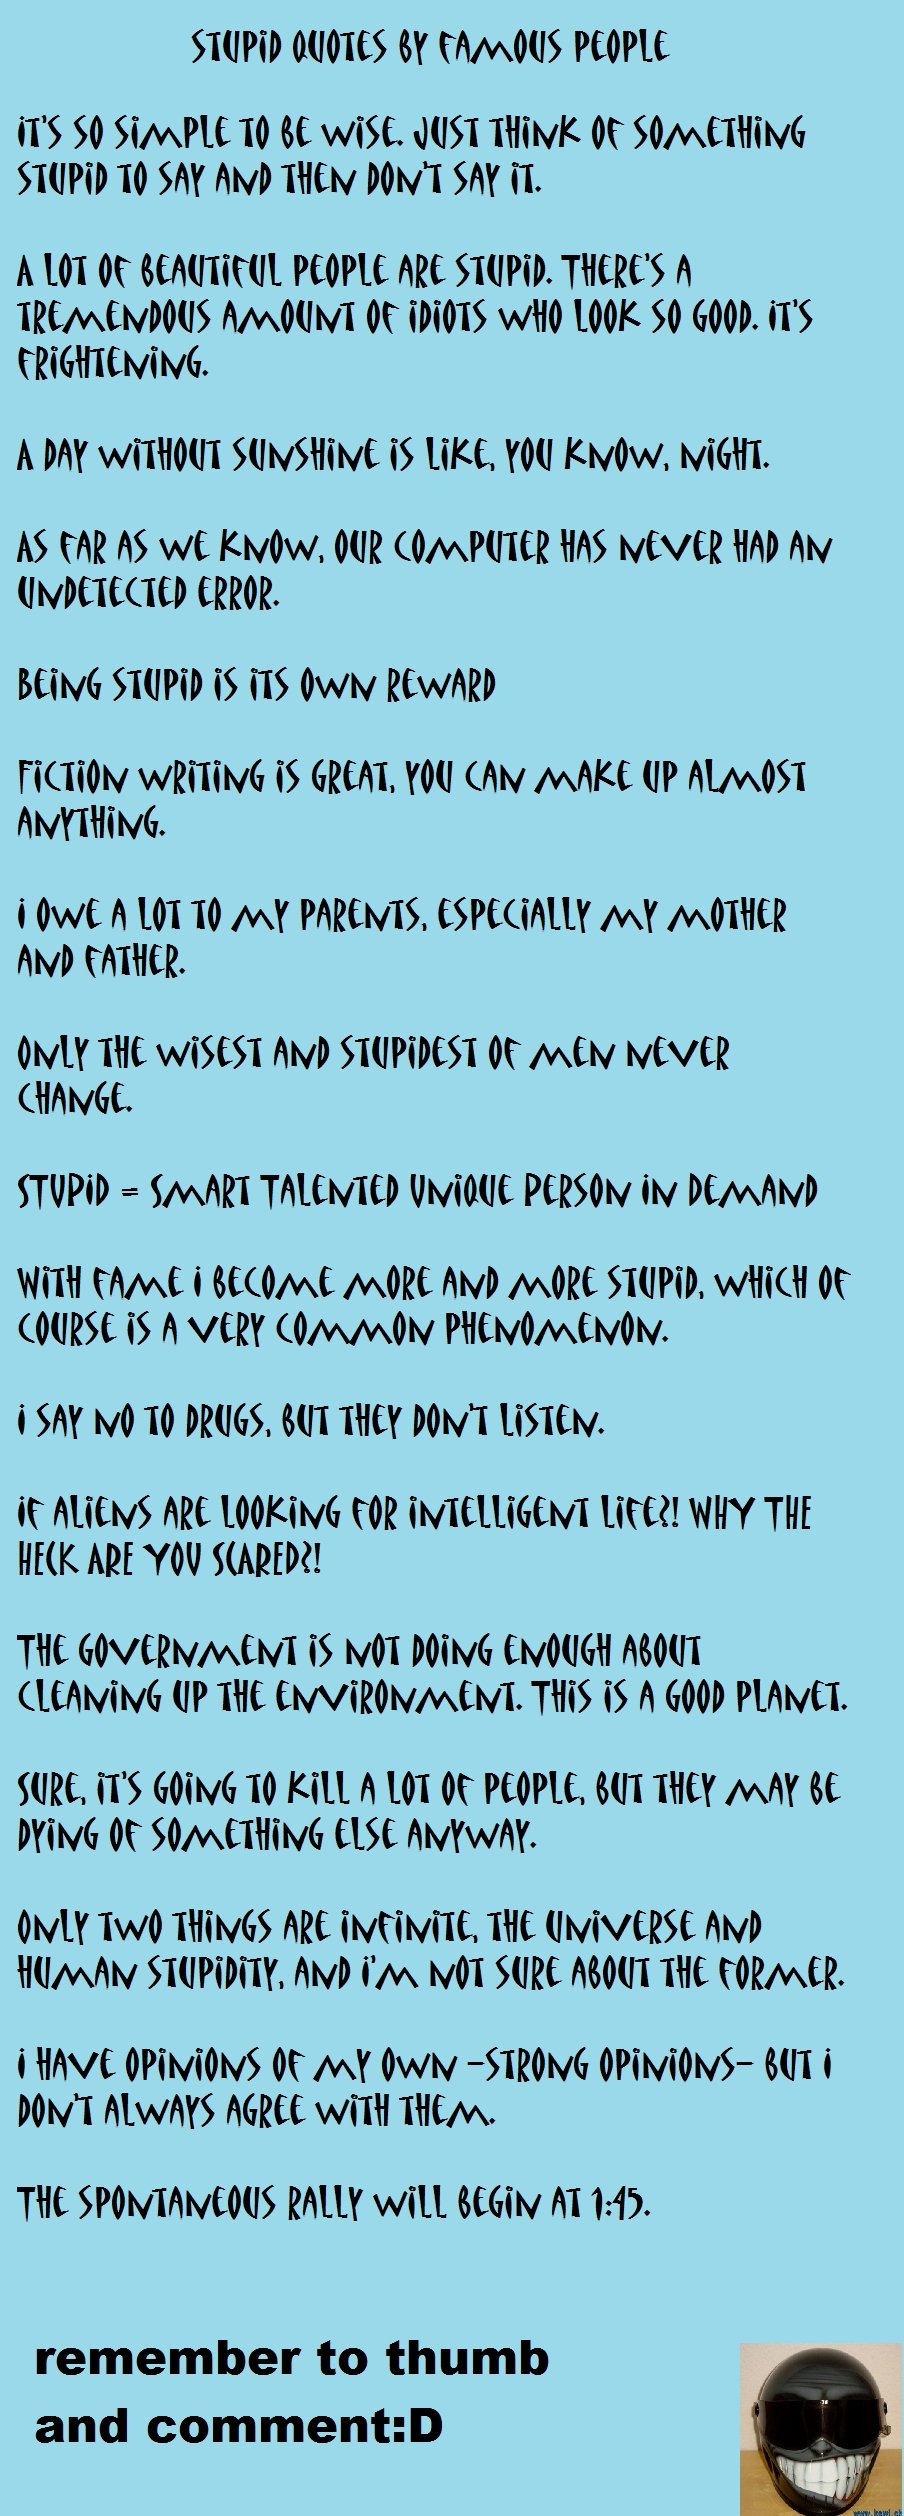 STUPID QUOTES BY FAMOUS PEOPLE
IT'S SO SIMPLE TO BE WISE. JUST THINK OF SOMETHING
STUPID TO SAY AND THEN DON'T SAY IT.
A LOT OF BEAUTIFUL PEOPLE ARE STUPID. THERE'S A
TREMENDOUS AMOUNT OF IDIOTS WHO LOOK SO GOOD. IT'S
FRIGHTENING.
A DAY WITHOUT SUNSHINE IS LIKE, YOU KNOW, NIGHT.
AS FAR AS WE KNOW, OUR COMPUTER HAS NEVER HAD AN
UNDETECTED ERROR.
BEING STUPID IS ITS OWN REWARD
FICTION WRITING IS GREAT, YOU CAN MAKE UP ALMOST
ANYTHING.
I OWE A LOT TO MY PARENTS, ESPECIALLY MY MOTHER
AND FATHER.
ONLY THE WISEST AND STUPIDEST OF MEN NEVER
CHANGE.
STUPID = SMART TALENTED UNIQUE PERSON IN DEMAND
WITH FAME I BECOME MORE AND MORE STUPID, WHICH OF
COURSE IS A VERY COMMON PHENOMENON.
I SAY NO TO DRUGS, BUT THEY DON'T LISTEN.
IF ALIENS ARE LOOKING FOR INTELLIGENT LIFE?! WHY THE
HECK ARE YOU SCARED?!
THE GOVERNMENT IS NOT DOING ENOUGH ABOUT
CLEANING UP THE ENVIRONMENT. THIS IS A GOOD PLANET.
SURE, IT'S GOING TO KILL A LOT OF PEOPLE, BUT THEY MAY BE
DYING OF SOMETHING ELSE ANYWAY.
ONLY TWO THINGS ARE INFINITE, THE UNIVERSE AND
HUMAN STUPIDITY, AND I'M NOT SURE ABOUT THE FORMER.
I HAVE OPINIONS OF MY OWN -STRONG OPINIONS- BUT I
DON'T ALWAYS AGREE WITH THEM.
THE SPONTANEOUS RALLY WILL BEGIN AT 1:45.
remember to thumb
and comment:D